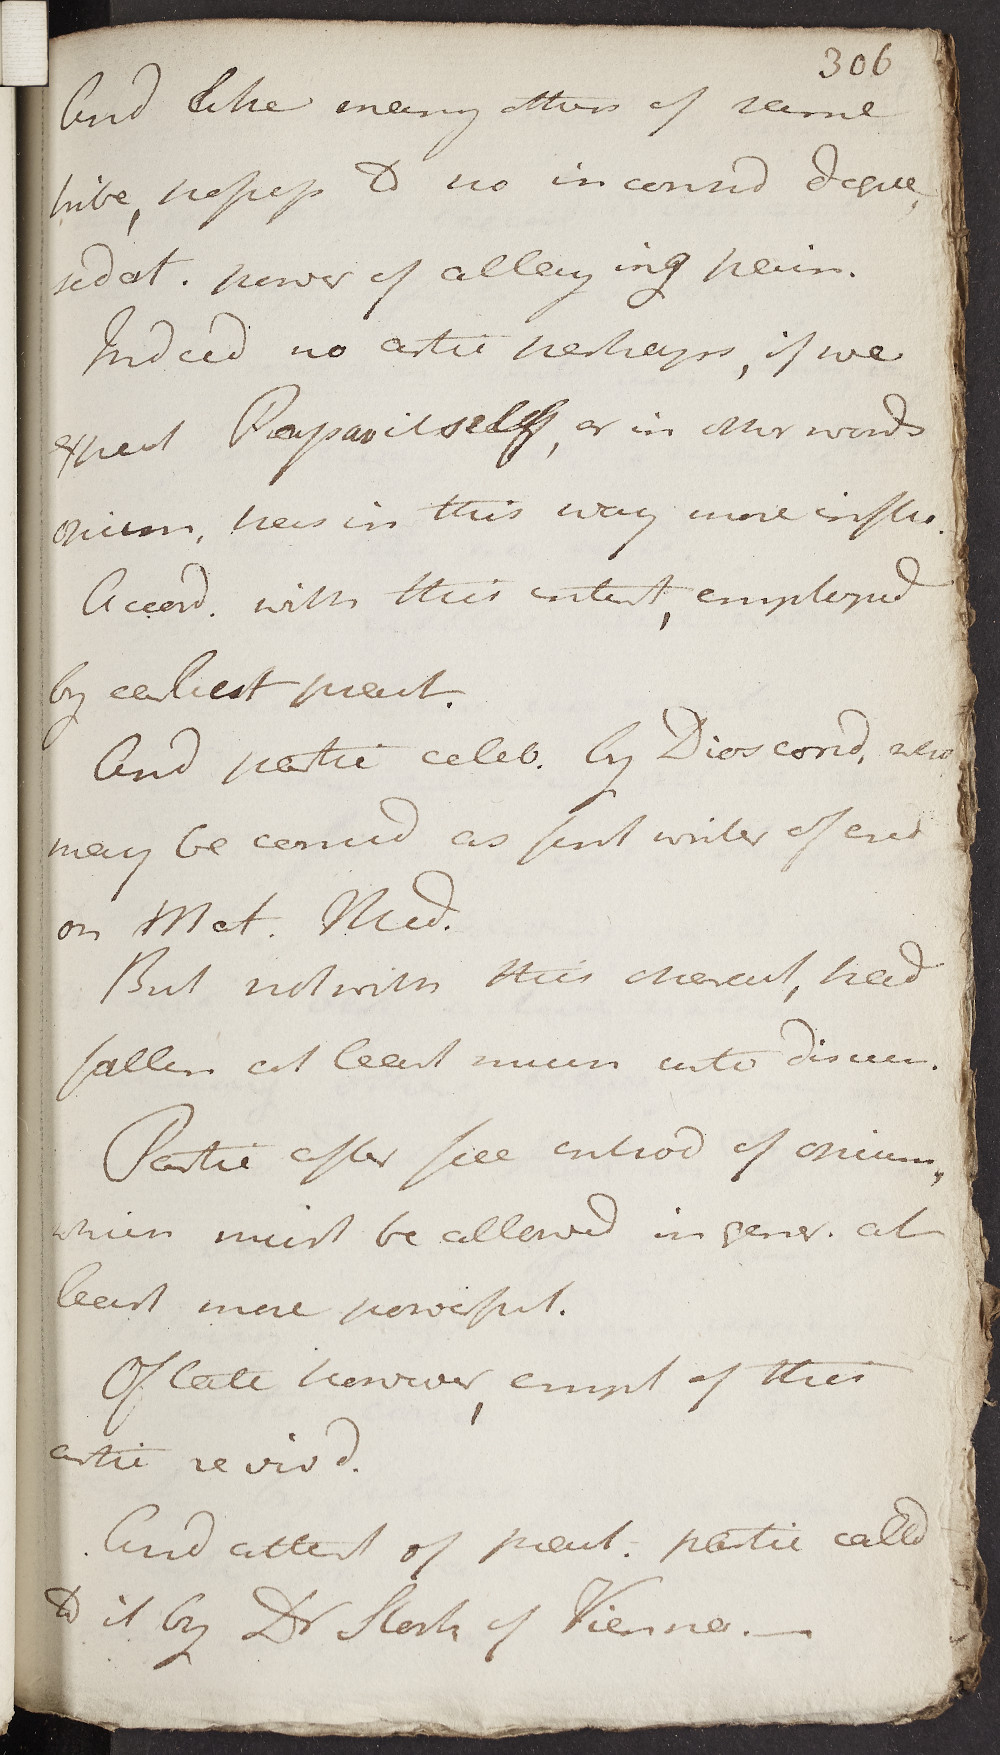 306
And like many others of same
tribe, possess to no inconsid degree,
sedat. power of allaying pain.
Indeed no artic perhaps, if we
except Papav itself, or in other words
opium, has in this way more influ.
Accord. with this intent, employed
by earliest pract.
And partic celeb. by Dioscorid, who
may be consid as first writer of cred
on Mat. Med.
But notwith this charact, had
fallen at least much into disuse.
Partic after free introd of opium,
which must be allowed in gener. at
least more powerful.
Of late however, empl of this
artic reviv'd.
And attent of pract. partic called
to it by Dr Stork of Vienna. —